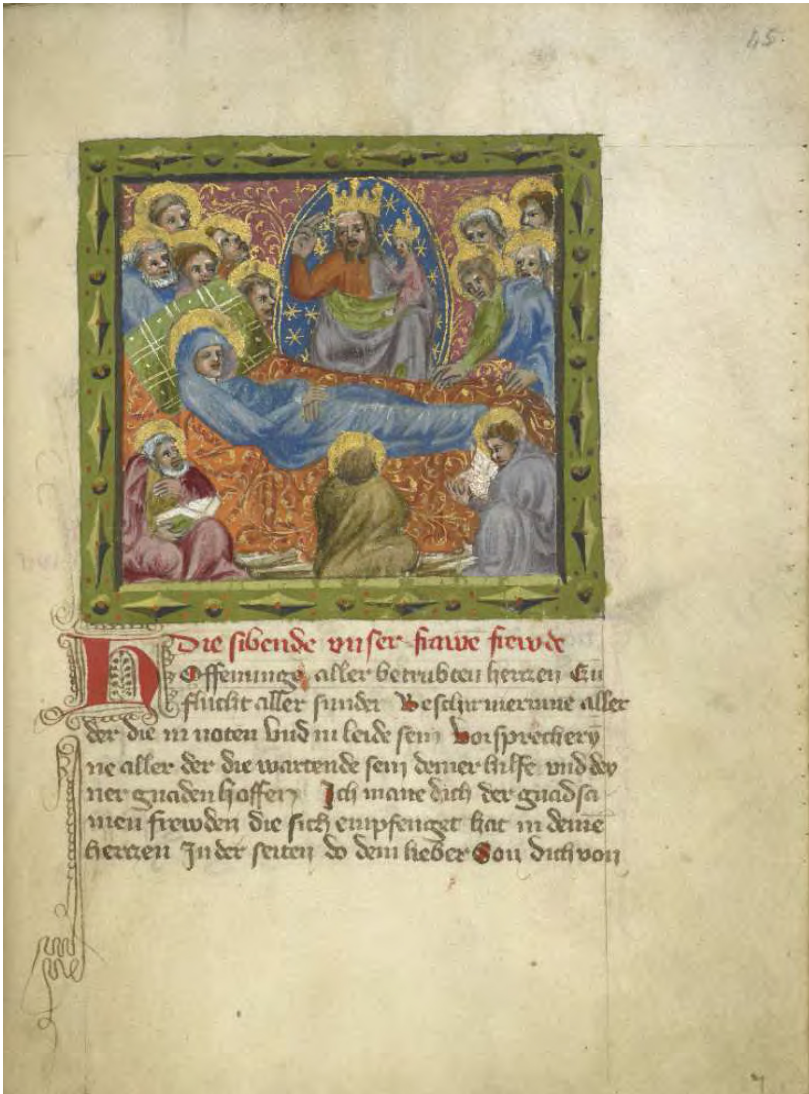 45.
Die sibende vnser frawe frewde
Hoffenunge aller betrubten herrzen Zu
flucht aller sunder Beschirmerinne aller
der die in noten vnd in leide sein Vorsprechery
ne aller der die wartende sein deiner hilfe vnd dey
ner gnaden hoffen Ich mane dich der gnadsa
men frewden die sich empfenget hat in deine
herrzen In der seiten do dein lieber Son dich von